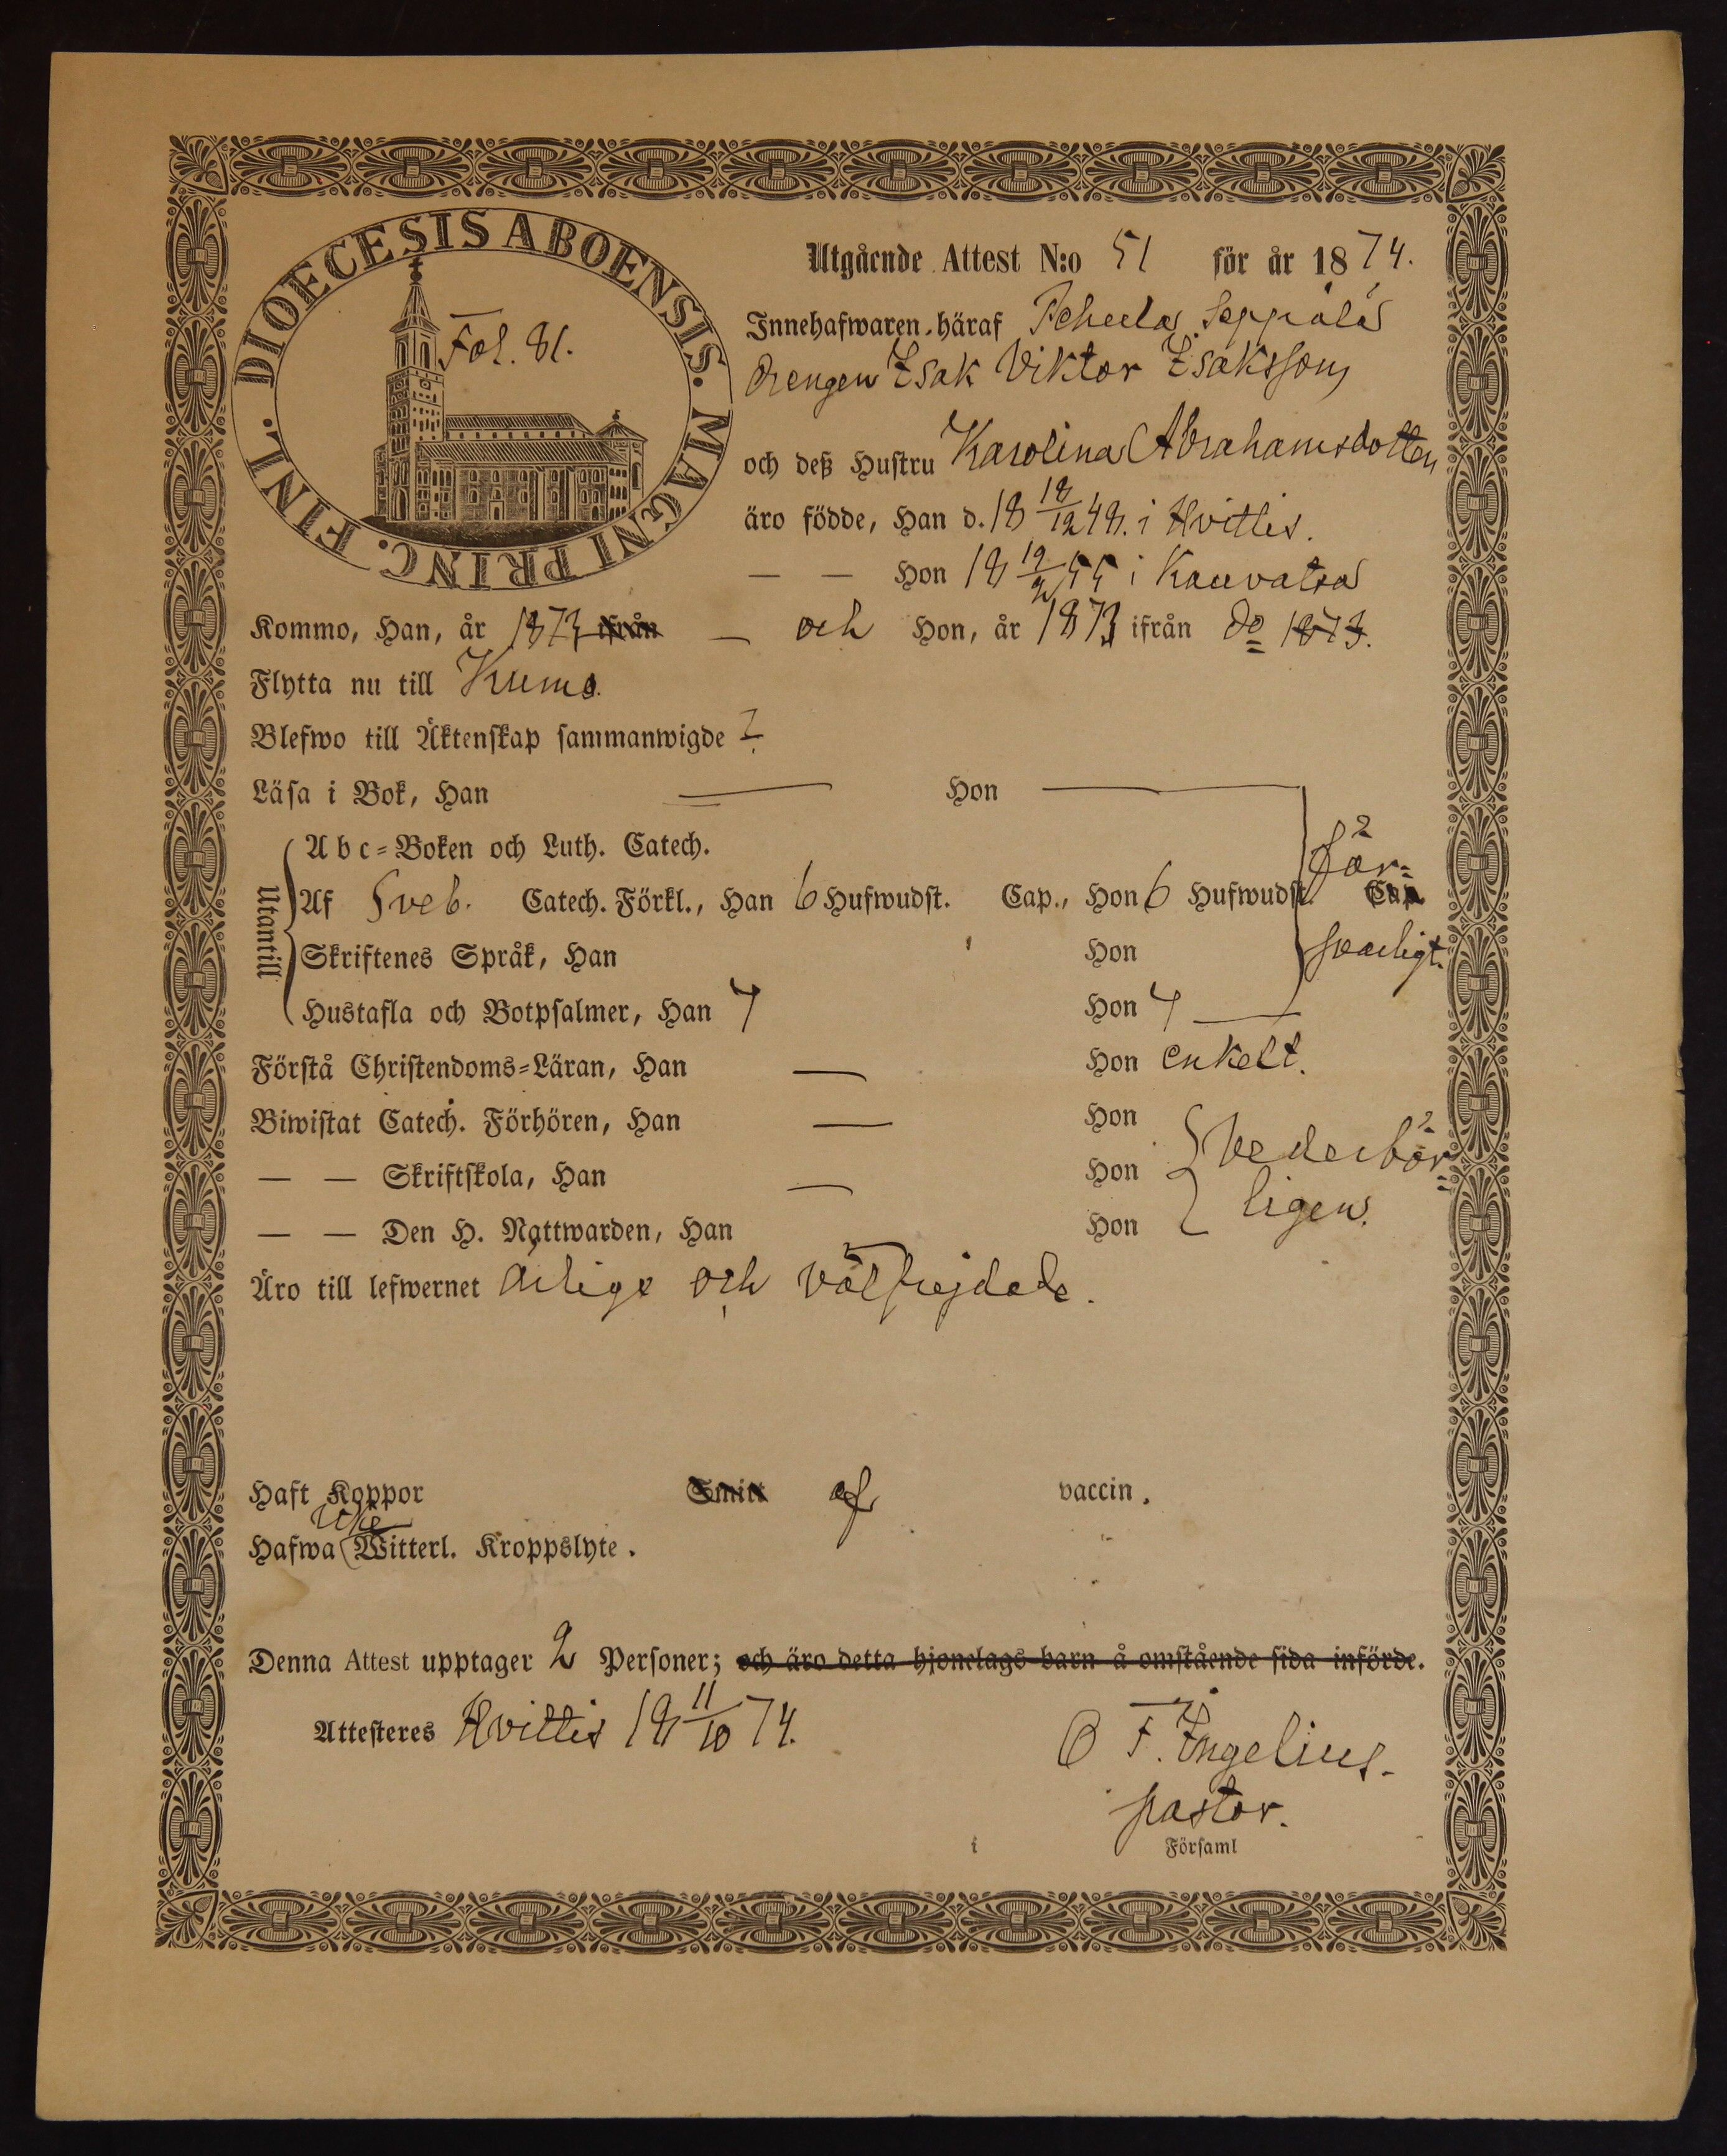 DIOECESIS ABOENSIS. MAGNI PRINC. FINL.
Fol. 81.
Utgående Attest N:o 51 för år 1874.
Innehafwaren häraf Seppälä
drengen Isak Viktor Isaksson,
och deß Hustru Karolina Abrahamsdotter
äro födde, Han d. 18 18/12 48. i Hvittis.
— — Hon 18 19/2 55 i Kauvatsa
Kommo, Han, år 1873 ifrån — och Hon, år 1873 ifrån do 1873.
Flytta nu till Kumo.
Blefwo till Äktenskap sammanwigde
Läsa i Bok, Han — Hon —
Utantill
Abc-Boken och Luth. Catech.
Af Sveb. Catech. Förkl., Han 6 Hufwudst. Cap., Hon 6 Hufwudst. Cap.
för=
svarligt.
Skriftenes Språk, Han Hon
Hustafla och Botpsalmer, Han 7 Hon 7 —
Förstå Christendoms-Läran, Han — Hon enkelt.
Biwistat Catech. Förhören, Han — Hon
— — Skriftskola, Han — Hon
— — Den H. Nattwarden, Han Hon
vederbör=
ligen.
Äro till lefwernet ärlige och välfrejdade.
Haft Koppor Smitt af vaccin.
Hafwa icke Witterl. Kroppslyte.
Denna Attest upptager 2 Personer; och äro detta hjonelags barn å omstående sida införde.
Attesteres Hvittis 18 11/10 74.
O F. Ingelius.
pastor.
i Församl